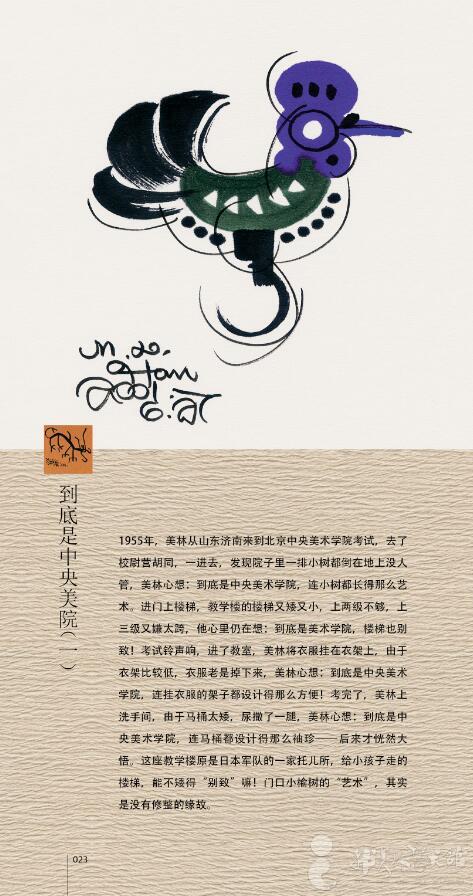 m.l.
Han
2001.6.
到底是中央美院（一）
1955年，美林从山东济南来到北京中央美术学院考试，去了
校尉营胡同，一进去，发现院子里一排小树都倒在地上没人
管，美林心想：到底是中央美术学院，连小树都长得那么艺
术。进门上楼梯，教学楼的楼梯又矮又小，上两级不够，上
三级又嫌太跨，他心里仍在想：到底是美术学院，楼梯也别
致！考试铃声响，进了教室，美林将衣服挂在衣架上，由于
衣架比较低，衣服老是掉下来，美林心想：到底是中央美术
学院，连挂衣服的架子都设计得那么方便！考完了，美林上
洗手间，由于马桶太矮，尿撒了一腿，美林心想：到底是中
央美术学院，连马桶都设计得那么袖珍——后来才恍然大
悟。这座教学楼原是日本军队的一家托儿所，给小孩子走的
楼梯，能不矮得“别致”嘛！门口小榆树的“艺术”，其实
是没有修整的缘故。
023